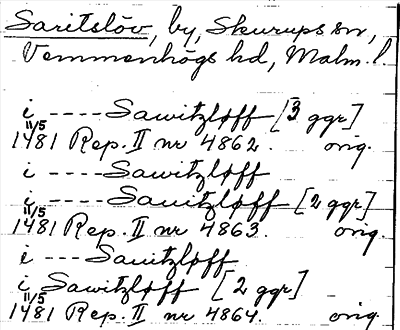 Saritslöv, by, Skurups sn,
Vemmenhögs hd, Malm. l.
i ---- Sawitzløff [3 ggr]
11/5 1481 Rep. II nr 4862. orig.
i ---- Sauitzløff
i ---- Sauitzløff [2 ggr]
11/5 1481 Rep. II nr 4863. orig.
i --- Sauitzløff
i Sawitzløff [2 ggr]
11/5 1481 Rep. II nr 4864. orig.